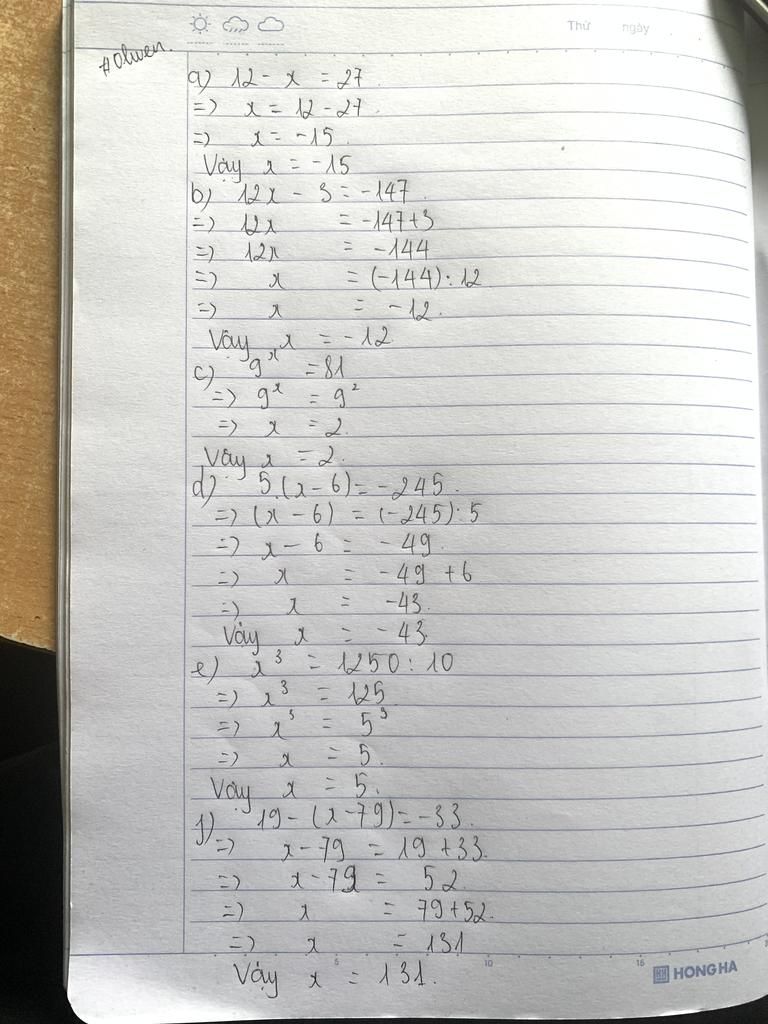 Thứ ngày
#Olwen.
a) 12 - x = 27
=> x = 12 - 27
=> x = -15
Vậy x = -15
b) 12x - 3 = -147
=> 12x = -147+3
=> 12x = -144
=> x = (-144) : 12
=> x = -12
Vậy x = -12
c) 9ˣ = 81
=> 9ˣ = 9²
=> x = 2.
Vậy x = 2.
d) 5.(x-6) = -245.
=> (x - 6) = (-245) : 5
=> x - 6 = -49.
=> x = -49 + 6
=> x = -43.
Vậy x = -43.
e) x³ = 1250 : 10
=> x³ = 125
=> x³ = 5³
=> x = 5.
Vậy x = 5.
f) 19 - (x-79) = -33.
=> x - 79 = 19 + 33.
=> x - 79 = 52.
=> x = 79+52.
=> x = 131
5 10 15
HONG HA
Vậy x = 131.